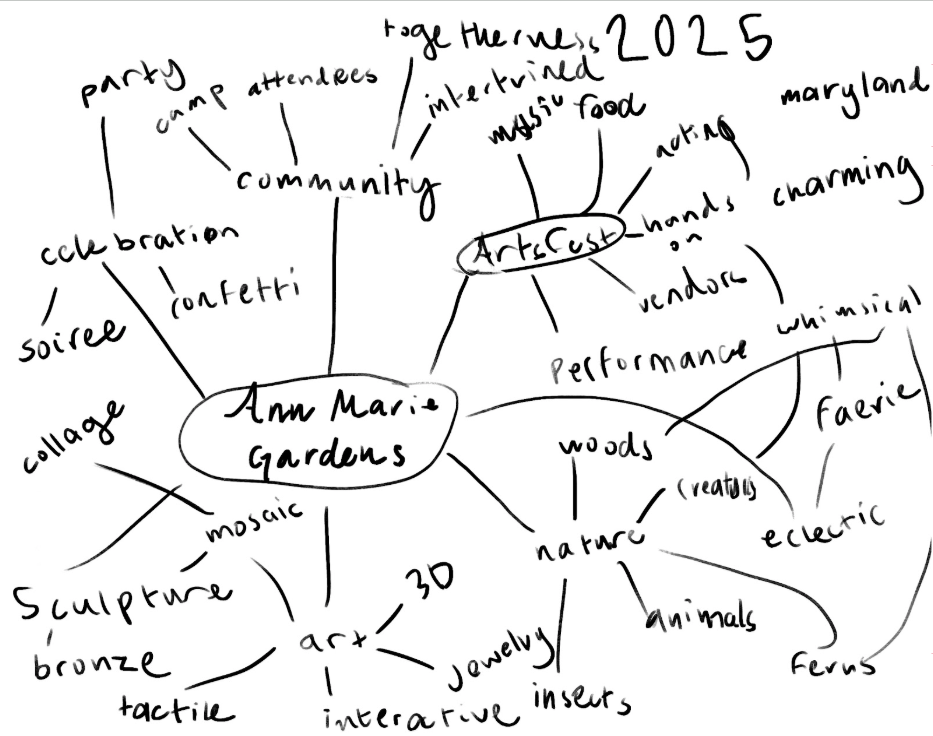 togetherness 2025
party
camp attendees
intertvined
music food
maryland
acting
community
charming
hands
on
celebration
ArtsFest
confetti
vendors
soiree
whimsical
performance
Faerie
Ann Marie
Gardens
collage
woods
creatures
mosaic
eclectic
nature
3D
sculpture
animals
art
bronze
jewelry
Ferns
tactile
interative
insects